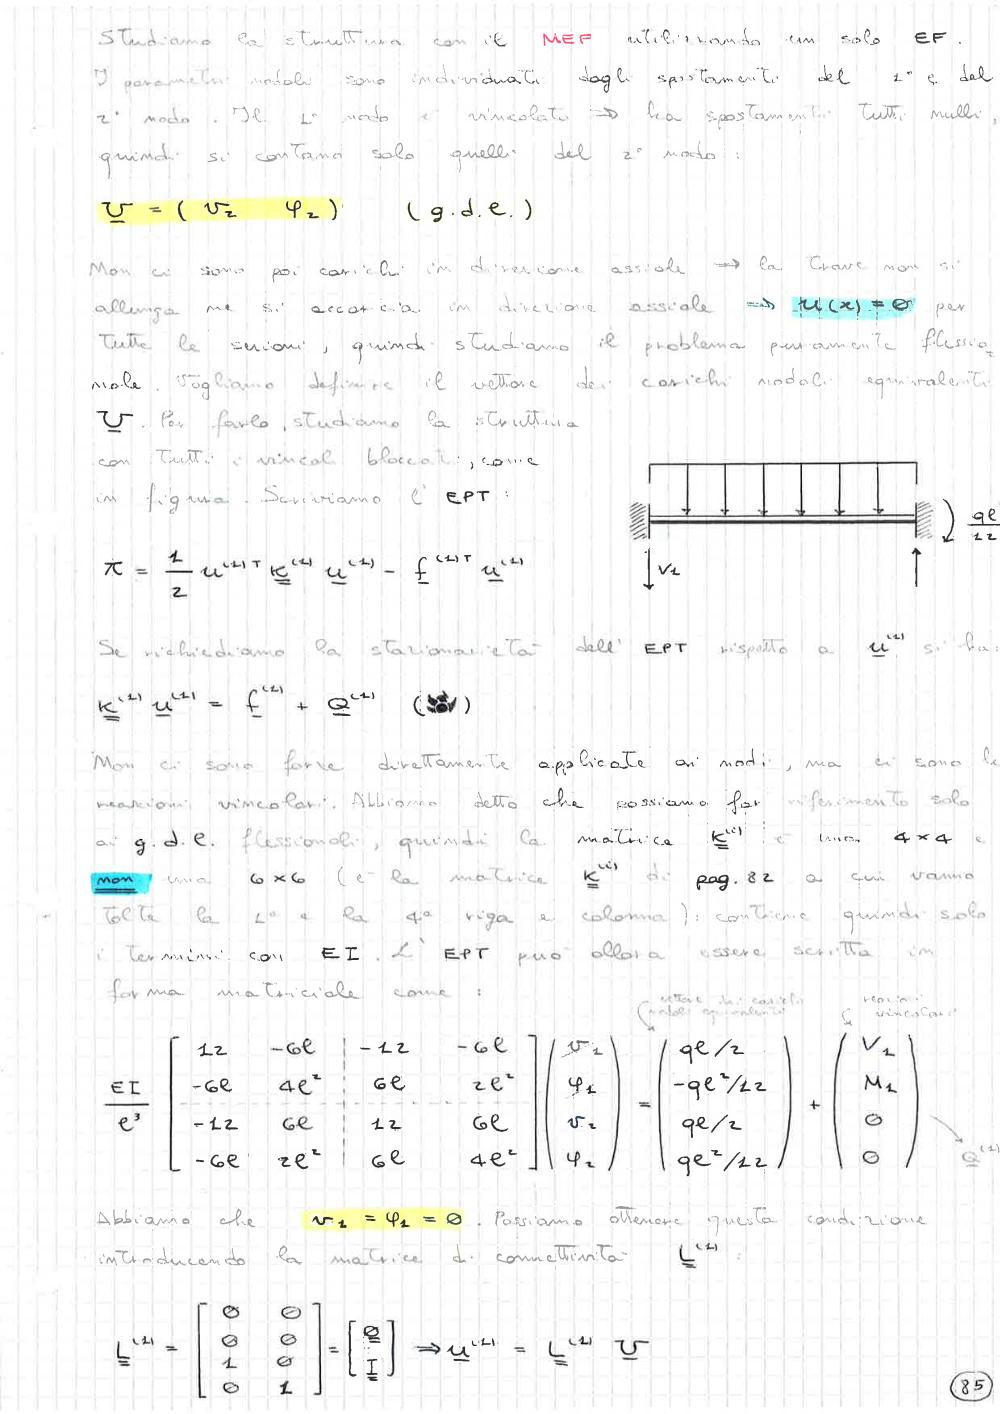 Studiamo la struttura con il MEF utilizzando un solo EF.
I parametri nodali sono individuati dagli spostamenti del 1° e del
2° nodo. Il 1° nodo è vincolato ⇒ ha spostamenti tutti nulli,
quindi si contano solo quelli del 2° nodo:
U = ( v2 φ2 ) (g.d.l.)
Non ci sono poi carichi in direzione assiale ⇒ la trave non si
allunga ne si accorcia in direzione assiale ⇒ u(x) = 0 per
tutte le sezioni, quindi studiamo il problema puramente flessio
nale. Vogliamo definire il vettore dei carichi nodali equivalenti
U. Per farlo, studiamo la struttura
con tutti i vincoli bloccati, come
in figura. Scriviamo l'EPT:
ql
12
V1
π = 1/2 u^(1)T K^(1) u^(1) - f^(1)T u^(1)
Se richiediamo la stazionarietà dell'EPT rispetto a u^(1) si ha:
K^(1) u^(1) = f^(1) + Q^(1)
Non ci sono forze direttamente applicate ai nodi, ma ci sono le
reazioni vincolari. Abbiamo detto che possiamo far riferimento solo
ai g.d.l. flessionali, quindi la matrice K^(i) è una 4×4 e
non una 6×6 (è la matrice K^(i) di pag. 82 a cui vanno
tolte la 1ª e la 4ª riga e colonna): contiene quindi solo
i termini con EI. L'EPT può allora essere scritta in
forma matriciale come:
vettore dei carichi nodali equivalenti
reazioni vincolari
EI/l³ [ 12 -6l -12 -6l ] ( v1 ) = ( ql/2 ) + ( V1 )
-6l 4l² 6l 2l² φ1 -ql²/12 M1
-12 6l 12 6l v2 ql/2 0
-6l 2l² 6l 4l² φ2 ql²/12 0
Q^(1)
Abbiamo che v1 = φ1 = 0. Possiamo ottenere questa condizione
introducendo la matrice di connettività L^(1):
L^(1) = [ 0 0 ] = [ 0 ] ⇒ u^(1) = L^(1) U
0 0 I
1 0
0 1
85